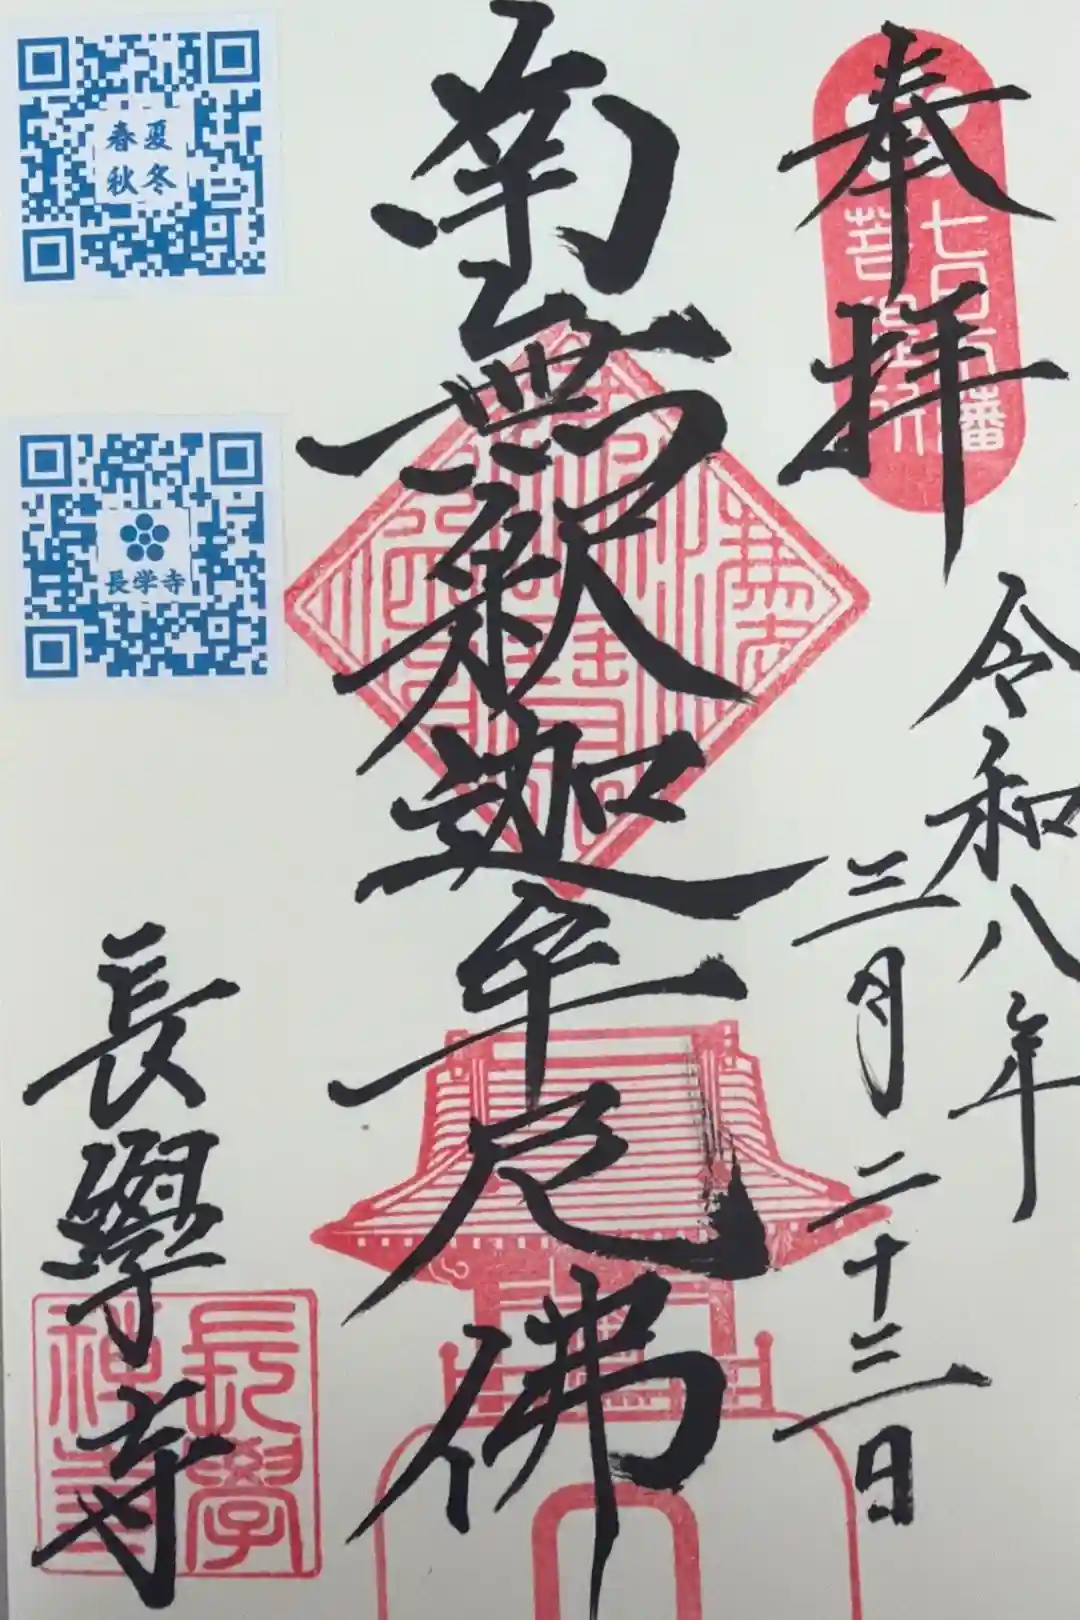 奉拝
令和八年
三月二十三日
南無釈迦牟尼佛
長學寺
春夏
秋冬
長学寺
長學
禅寺